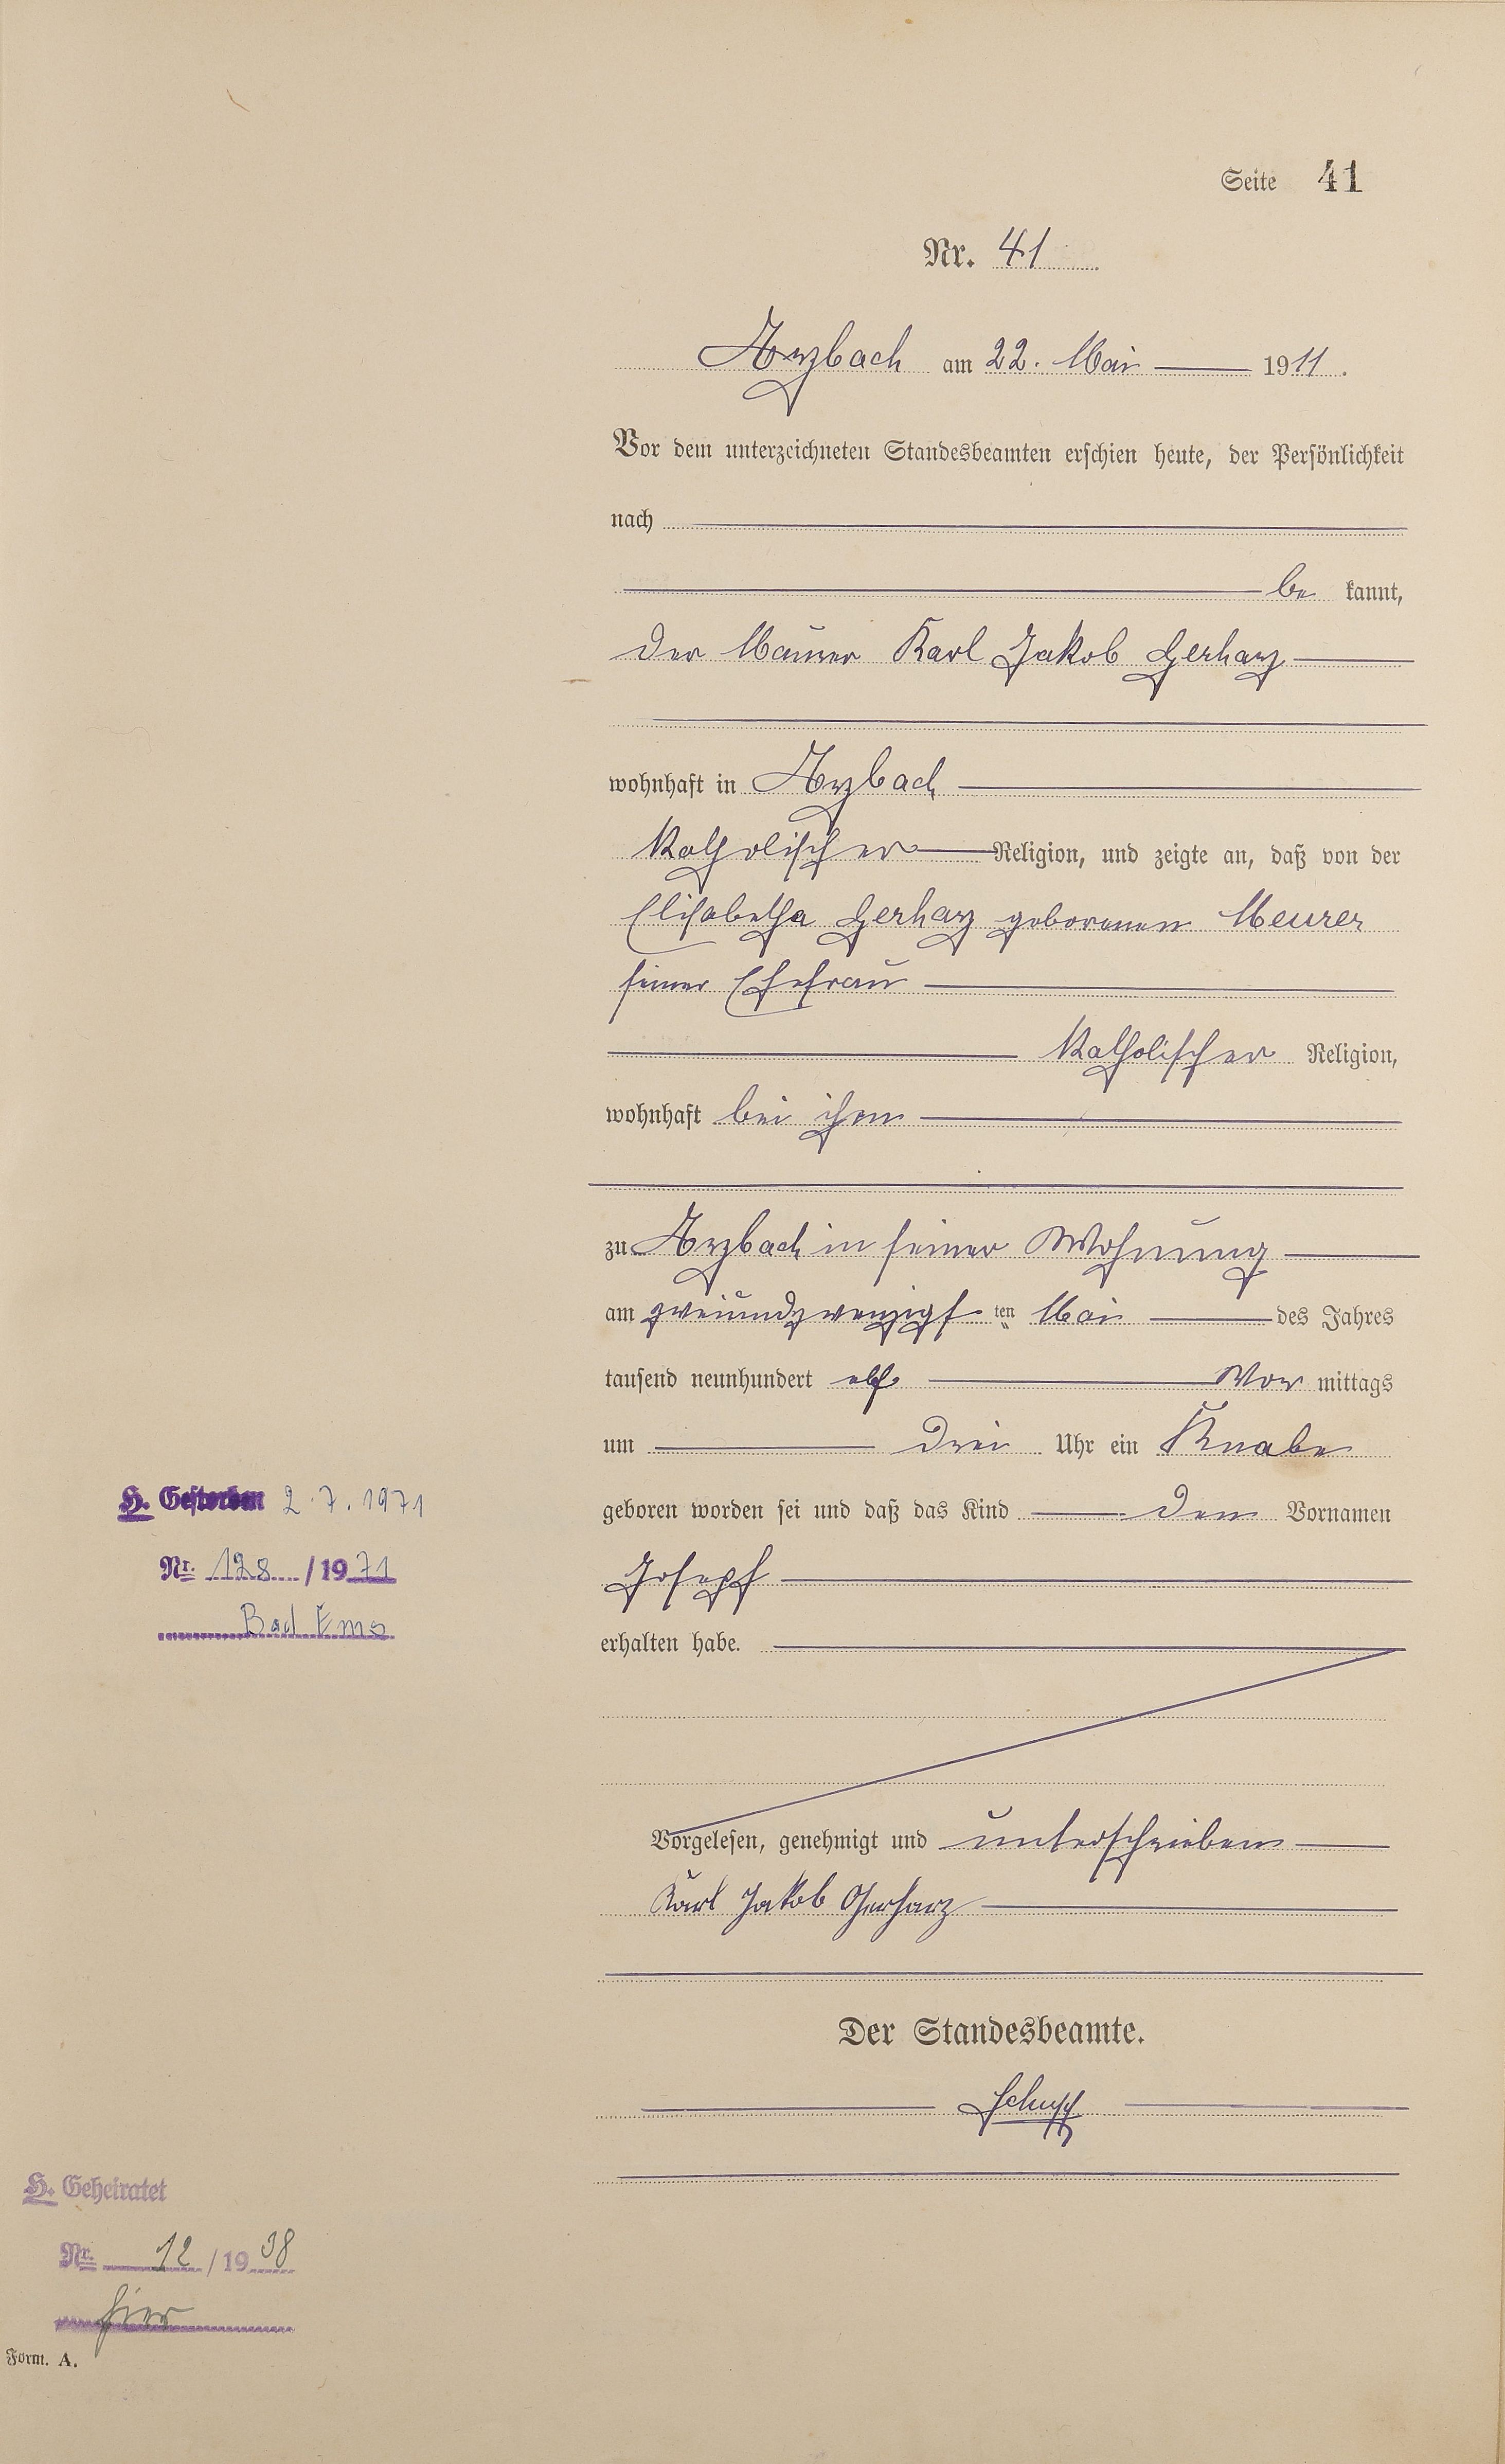 Seite 41
Nr. 41
Arzbach am 22. Mai 1911.
Vor dem unterzeichneten Standesbeamten erschien heute, der Persönlichkeit
nach
be kannt,
der Maurer Karl Jakob Gerharz
wohnhaft in Arzbach
katholischer Religion, und zeigte an, daß von der
Elisabetha Gerharz geborenen Meurer
seiner Ehefrau
katholischer Religion,
wohnhaft bei ihm
zu Arzbach in seiner Wohnung
am zweiundzwanzigsten Mai des Jahres
tausend neunhundert elf Vor mittags
um drei Uhr ein Knabe
geboren worden sei und daß das Kind den Vornamen
Josef
erhalten habe.
Vorgelesen, genehmigt und unterschrieben
Karl Jakob Gerharz
Der Standesbeamte.
H. Gestorben 2.7.1971
Nr. 128 / 1971
Bad Ems
H. Geheiratet
Nr. 12 / 1938
hier
Form. A.